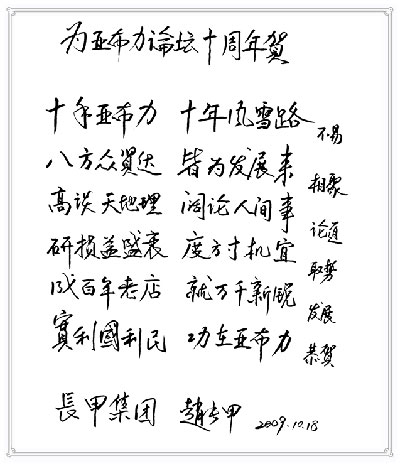 为亚布力论坛十周年贺
十年亚布力 十年风雪路
八方众賢达 皆为发展来
高谈天地理 阔论人间事
研损益盛衰 度方寸机宜
成百年老店 就万千新锐
實利國利民 功在亚布力
不易
相聚
论道
取势
发展
恭贺
長甲集团 趙长甲 2009.10.18